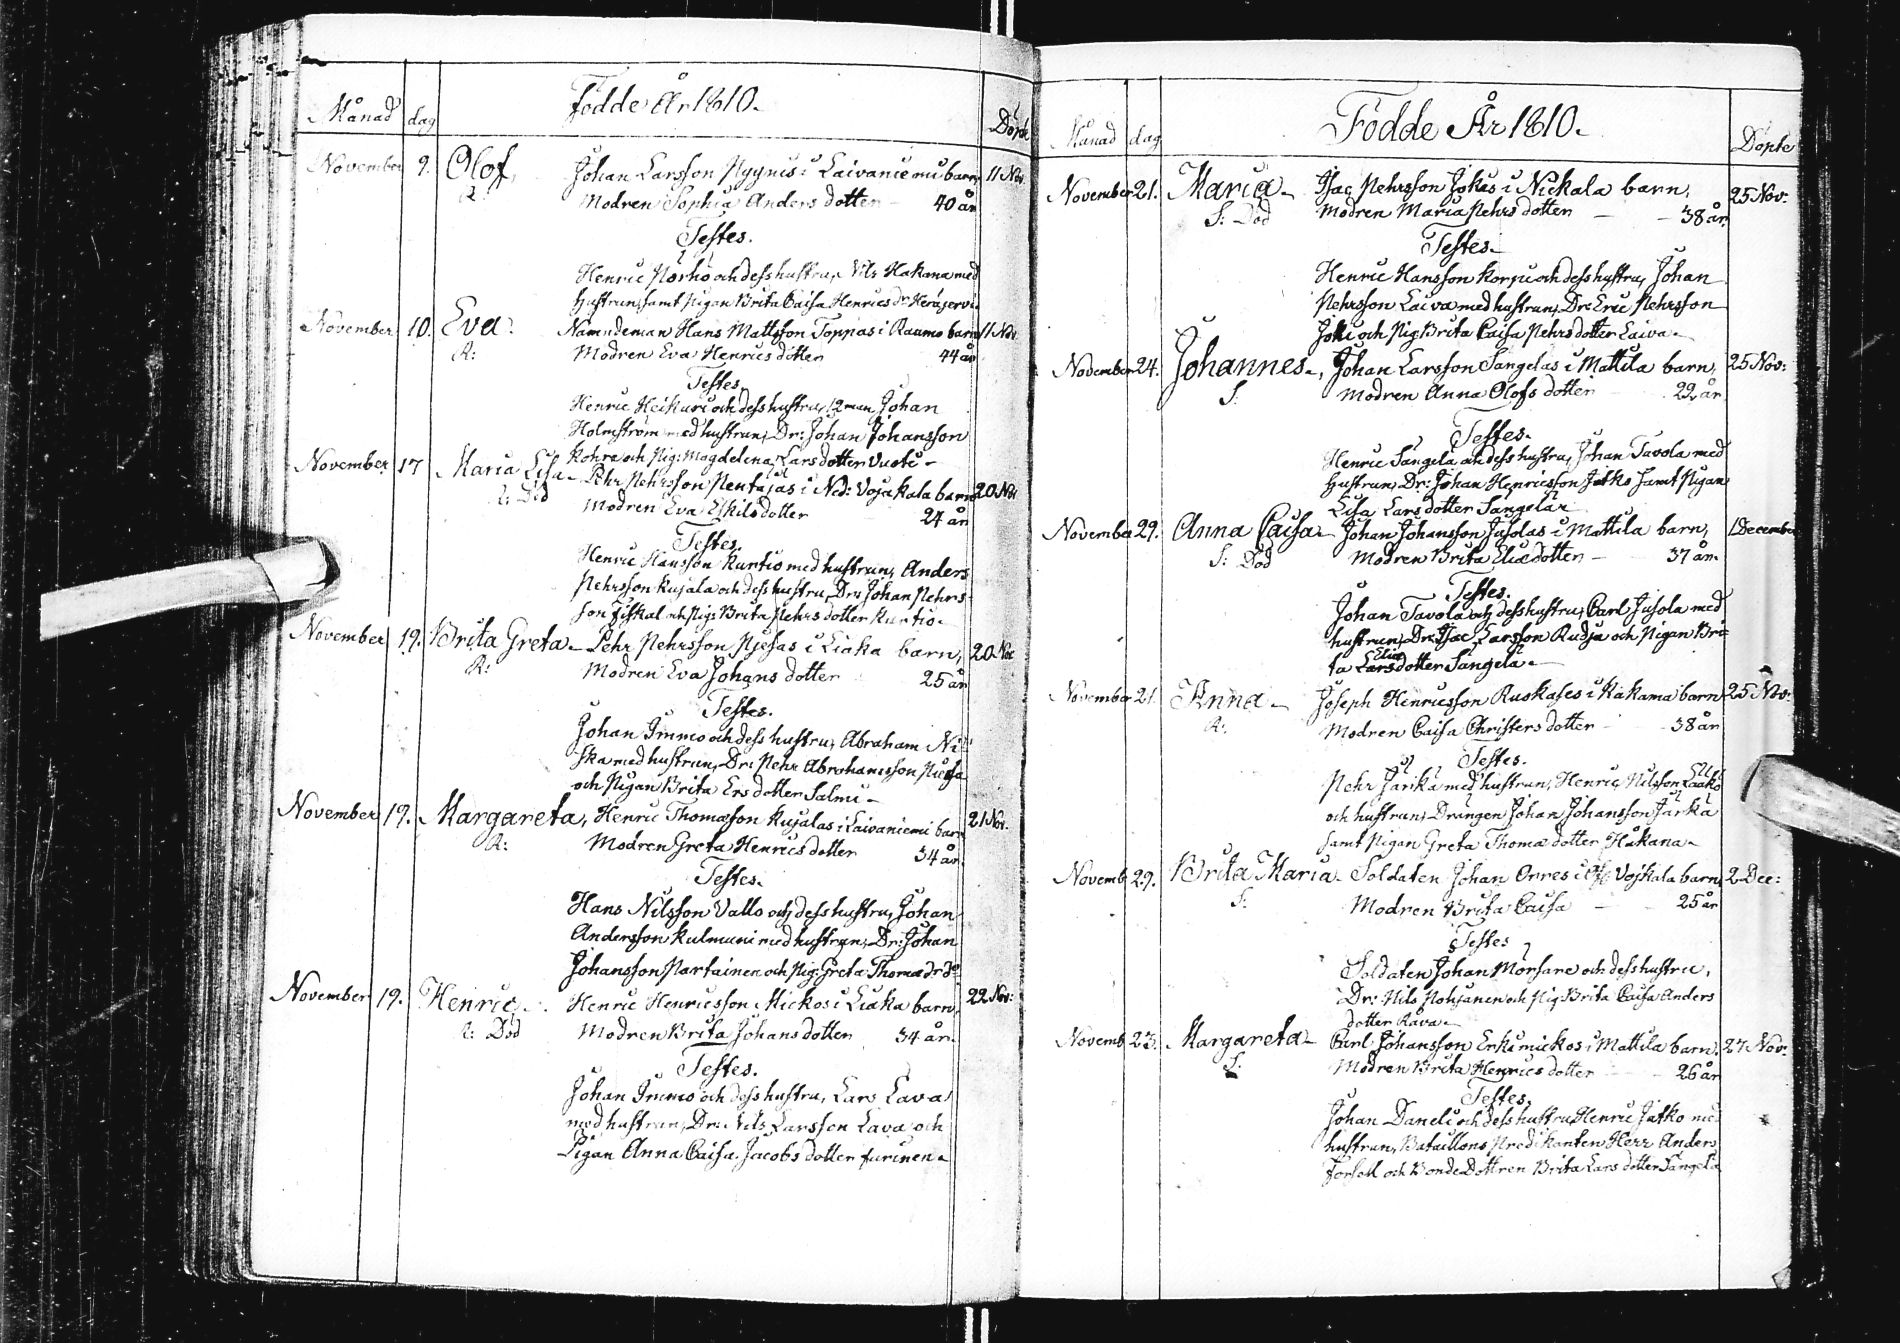 Födde År 1810.
Månad dag Döpte
November 9. Olof, Johan Larsson Nyynis i Laivaniemi barn 11 Nov.
R: Modren Sophia Anders dotter 40 år
Testes.
Henric och dess hustru, Nils Hakana med
hustrun, samt Pigan Brita Caisa Henrics dr
November 10. Eva. Nämndeman Hans Mattsson Toppas i Raumo barn 11 Nov
R: Modren Eva Henrics dotter 44 år
Testes.
Henric Heikuri och dess hustru, Johan
Holmström med hustrun, Dr: Johan Johansson
och Pig: Magdelina Lars dotter Vuoti -
November 17 Maria Lisa - Pehr Pehrsson Pentäjäs i Ned: Vojakala barn 20 Nov
R: Död Modren Eva Eskils dotter 24 år
Testes.
Henric Hansson Kurtio med hustrun, Anders
Pehrsson Kujala och dess hustru, Dr: Johan Pehrs-
son Fiskal och Pig: Brita Pehrs dotter Kurtio -
November 19. Brita Greta - Pehr Pehrsson i Liaka barn, 20 Nov
R: Modren Eva Johans dotter 25 år
Testes.
Johan Immo och dess hustru, Abraham Ni-
ska med hustrun, Dr: Pehr Abrahamsson
och Pigan Brita Ers dotter Salmi -
November 19. Margareta, Henric Thomæson Kujalas i Laivaniemi barn 21 Nov.
R: Modren Greta Henrics dotter 34 år
Testes.
Hans Nilsson Vallo och dess hustru, Johan
Andersson Kulmuni med hustrun, Dr: Johan
Johansson Partainen och Pig: Greta Thomæ dr do
November 19. Henric. Henric Henricsson Mickos i Liaka barn, 22 Nov:
R: Död Modren Brita Johans dotter 34 år.
Testes.
Johan Immo och dess hustru, Lars Lava
med hustrun, Dr: Nils Larsson Lava och
Pigan Anna Caisa Jacobs dotter Furinen -
Födde År 1810.
Månad dag Döpte
November 21. Maria - Isac Pehrsson Jokis i Nickala barn, 25 Nov:
S: Död Modren Maria Pehrs dotter - 38 år
Testes -
Henric Hansson Korpi och dess hustru, Johan
Pehrsson Laiva med hustrun, Dr: Eric Pehrsson
Joki och Pig: Brita Caisa Pehrs dotter Laiva -
November 24. Johannes -, Johan Larsson Sangelas i Mattila barn, 25 Nov:
S: Modren Anna Olofs dotter 22 år
Testes.
Henric Sangela och dess hustru, Johan Tavola med
hustrun, Dr: Johan Henricsson Jatko samt Pigan
Lisa Lars dotter Sangela
November 29. Anna Caisa - Johan Johansson Jusolas i Mattila barn, 1 December
S: Död Modren Brita Eliæ dotter - 37 år.
Testes.
Johan Tavola och dess hustru, Carl Jusola med
hustrun, Dr: Isac Larsson Rudja och Pigan Bri-
ta Lars Eliæ dotter Sangela -
November 21. Anna - Joseph Henricsson Ruskases i Kakama barn 25 Nov:
R: Modren Caisa Christers dotter - 38 år
Testes.
Pehr Jarkä med hustrun, Henric Nilsson Laako
och hustrun, Drängen Johan Johansson Järkä
samt Pigan Greta Thomæ dotter Håkana -
Novemb 29. Brita Maria - Soldaten Johan Orres i Vojkala barn, 2 Dec:
S: Modren Brita Caisa - - 25 år
Testes
Soldaten Johan Morsare och dess hustru,
Dr: Nils Pohjanen och Pig: Brita Caisa Anders
dotter Rava -
Novemb 23. Margareta - Carl Johansson Erkimickos i Mattila barn. 27 Nov:
S: Modren Brita Henrics dotter - 26 år
Testes.
Johan Daneli och dess hustru, Henric Jatko med
hustrun, Bataillons Predikanten Herr Anders
Forsell och Bonde Dottren Brita Lars dotter Sangela